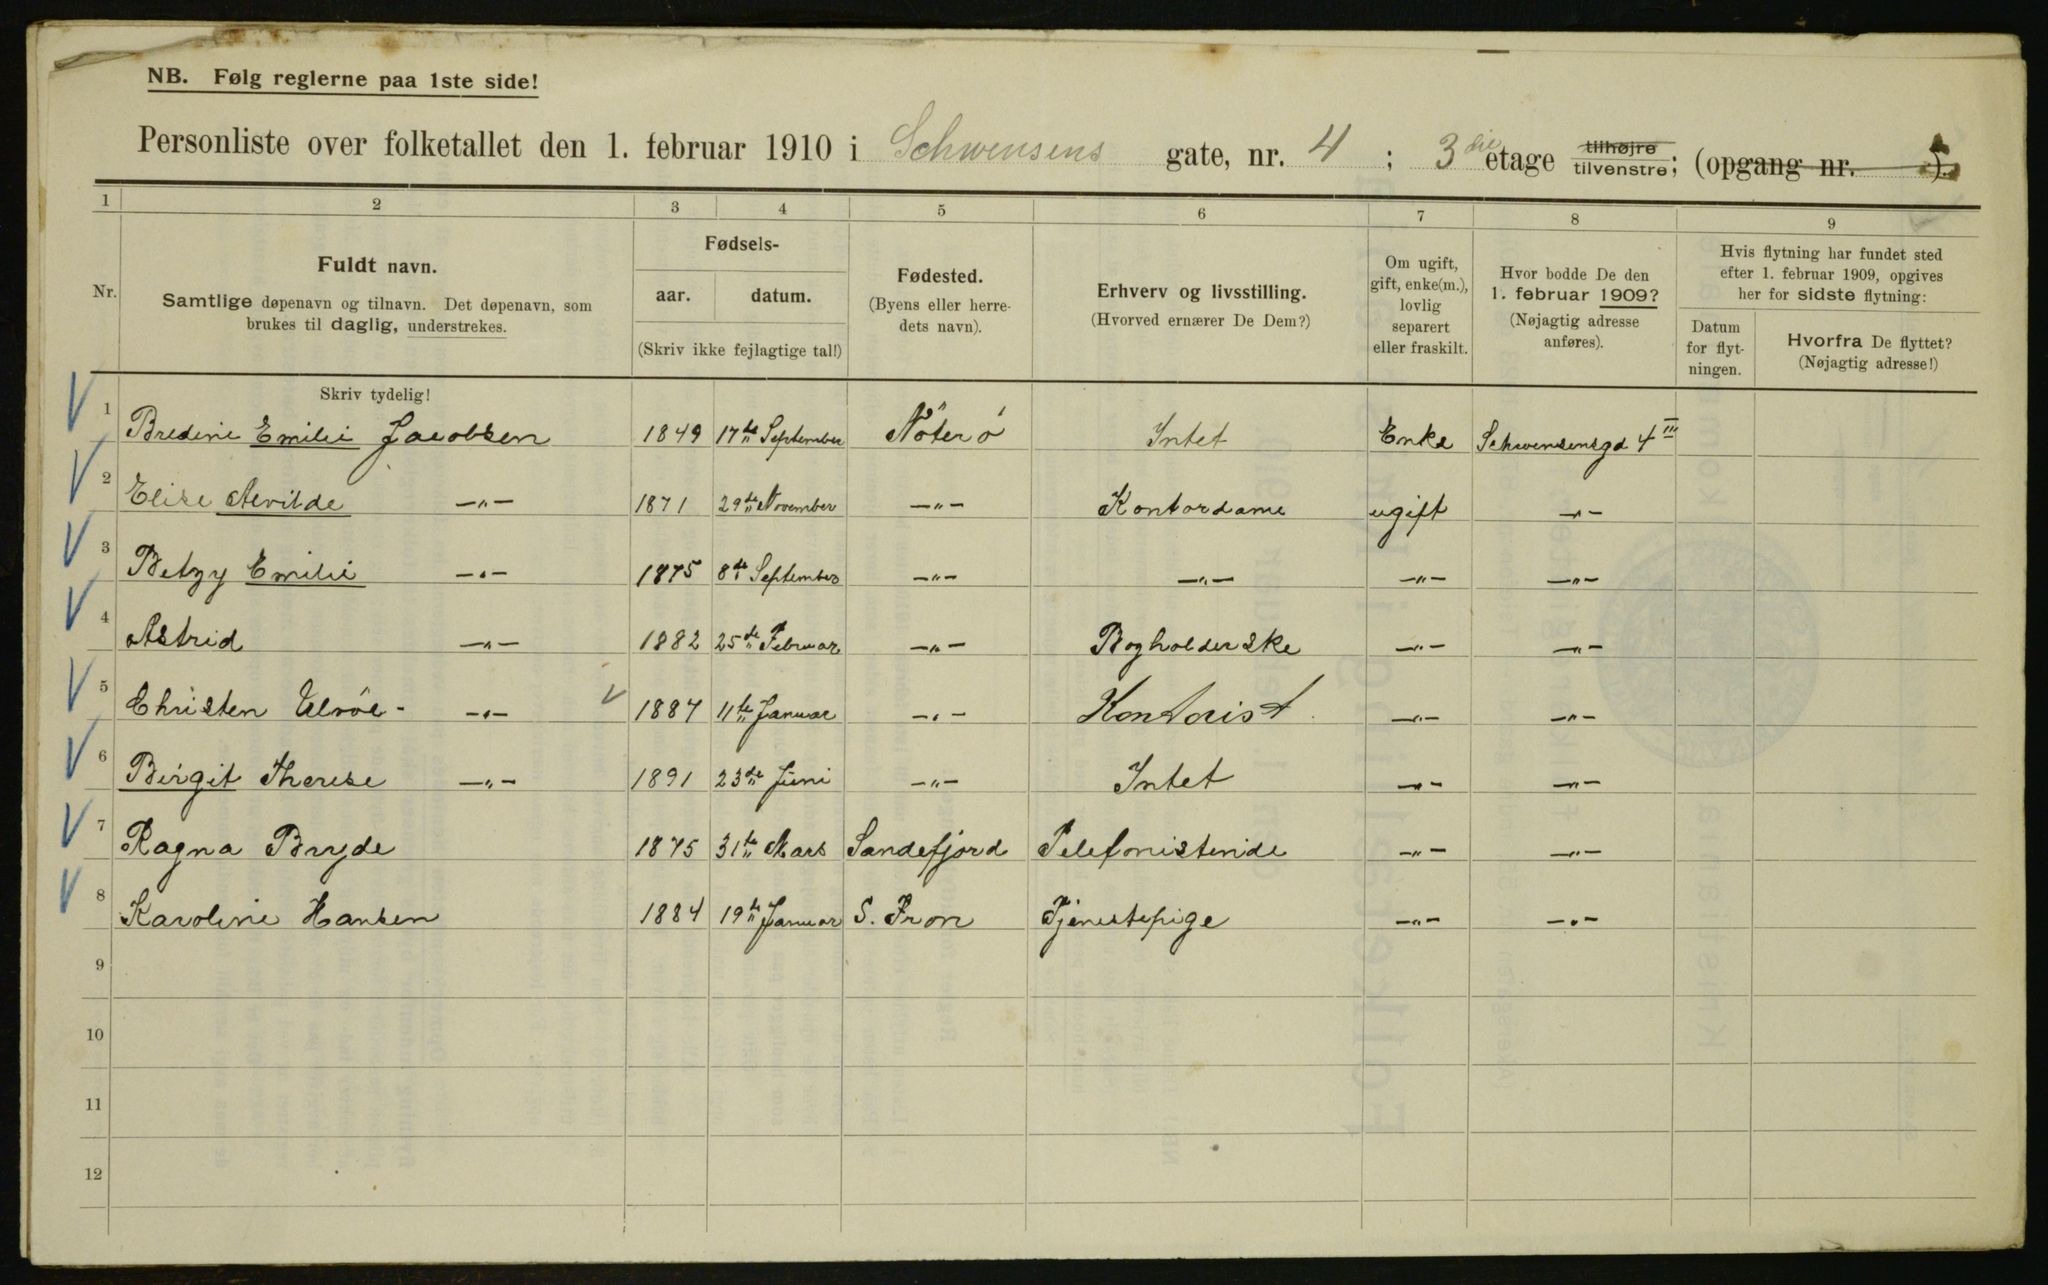 NB. Følg reglerne paa 1ste side!
Personliste over folketallet den 1. februar 1910 i Schwensens gate, nr. 4 ; 3die etage tilhøjre tilvenstre; (opgang nr. )
1 2 3 4 5 6 7 8 9
Nr.
Fuldt navn.
Samtlige døpenavn og tilnavn. Det døpenavn, som
brukes til daglig, understrekes.
Fødsels-
aar. datum.
(Skriv ikke fejlagtige tal!)
Fødested.
(Byens eller herre-
dets navn).
Erhverv og livsstilling.
(Hvorved ernærer De Dem?)
Om ugift,
gift, enke(m.),
lovlig
separert
eller fraskilt.
Hvor bodde De den
1. februar 1909?
(Nøjagtig adresse
anføres).
Hvis flytning har fundet sted
efter 1. februar 1909, opgives
her for sidste flytning:
Datum
for flyt-
ningen.
Hvorfra De flyttet?
(Nøjagtig adresse!)
Skriv tydelig!
1 Bredine Emilie Jacobsen 1849 17de September Nöterö Intet Enke Schwensensgd 4 III
2 Elise Alvilde —„— 1871 29de November —„— Kontordame ugift —„—
3 Betzy Emilie —„— 1875 8de September —„— —„— —„— —„—
4 Astrid —„— 1882 25de Februar —„— Bogholderske —„— —„—
5 Christen Ulvöe - —„— 1887 11te Januar —„— Kontorist —„— —„—
6 Birgit Therese —„— 1891 23de Juni —„— Intet —„— —„—
7 Ragna Bryde 1875 31te Mars Sandefjord Telefonistinde —„— —„—
8 Karoline Hansen 1884 19te Januar S. Fron Tjenestepige —„— —„—
9
10
11
12